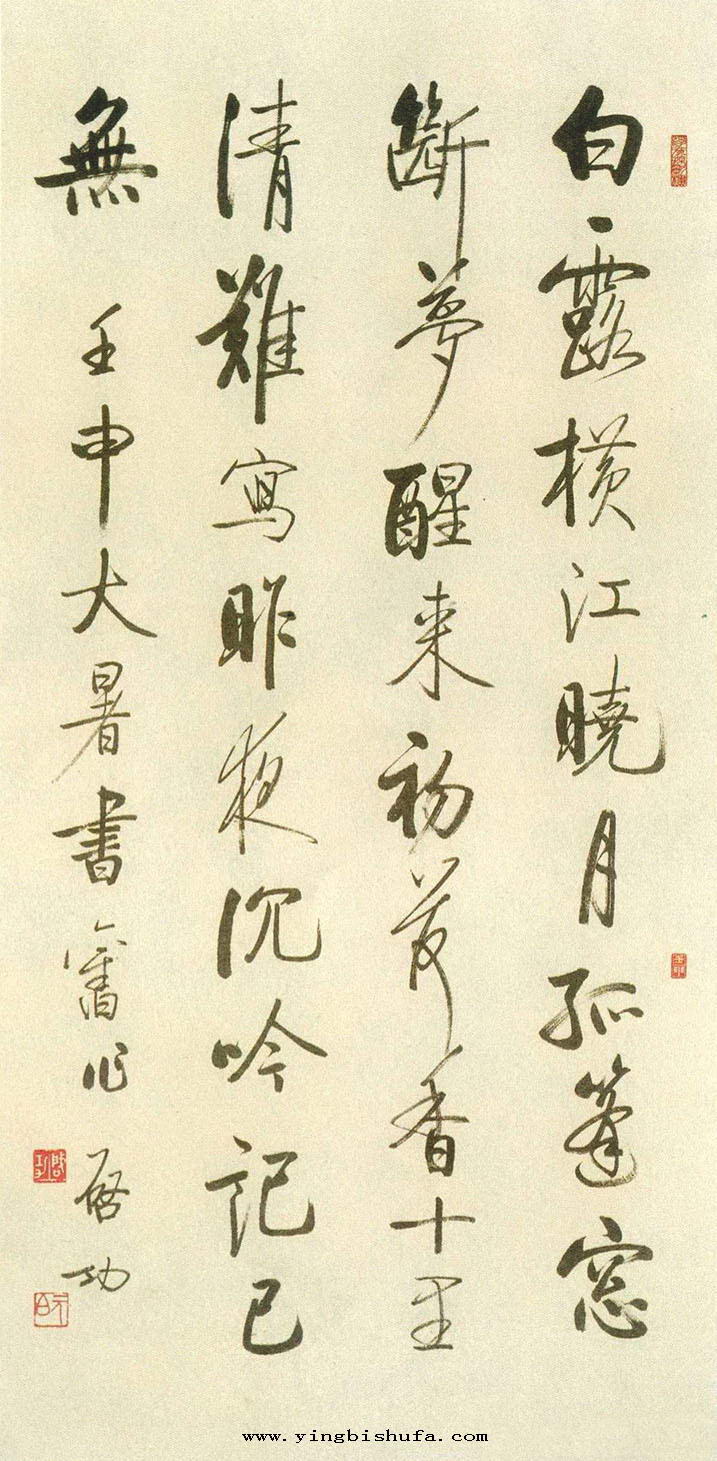 白露橫江曉月孤篷窓
斷夢醒来初荷香十里
清難寫昨夜沉吟記已
無 壬申大暑書舊作 啓功
啓功
www.yingbishufa.com